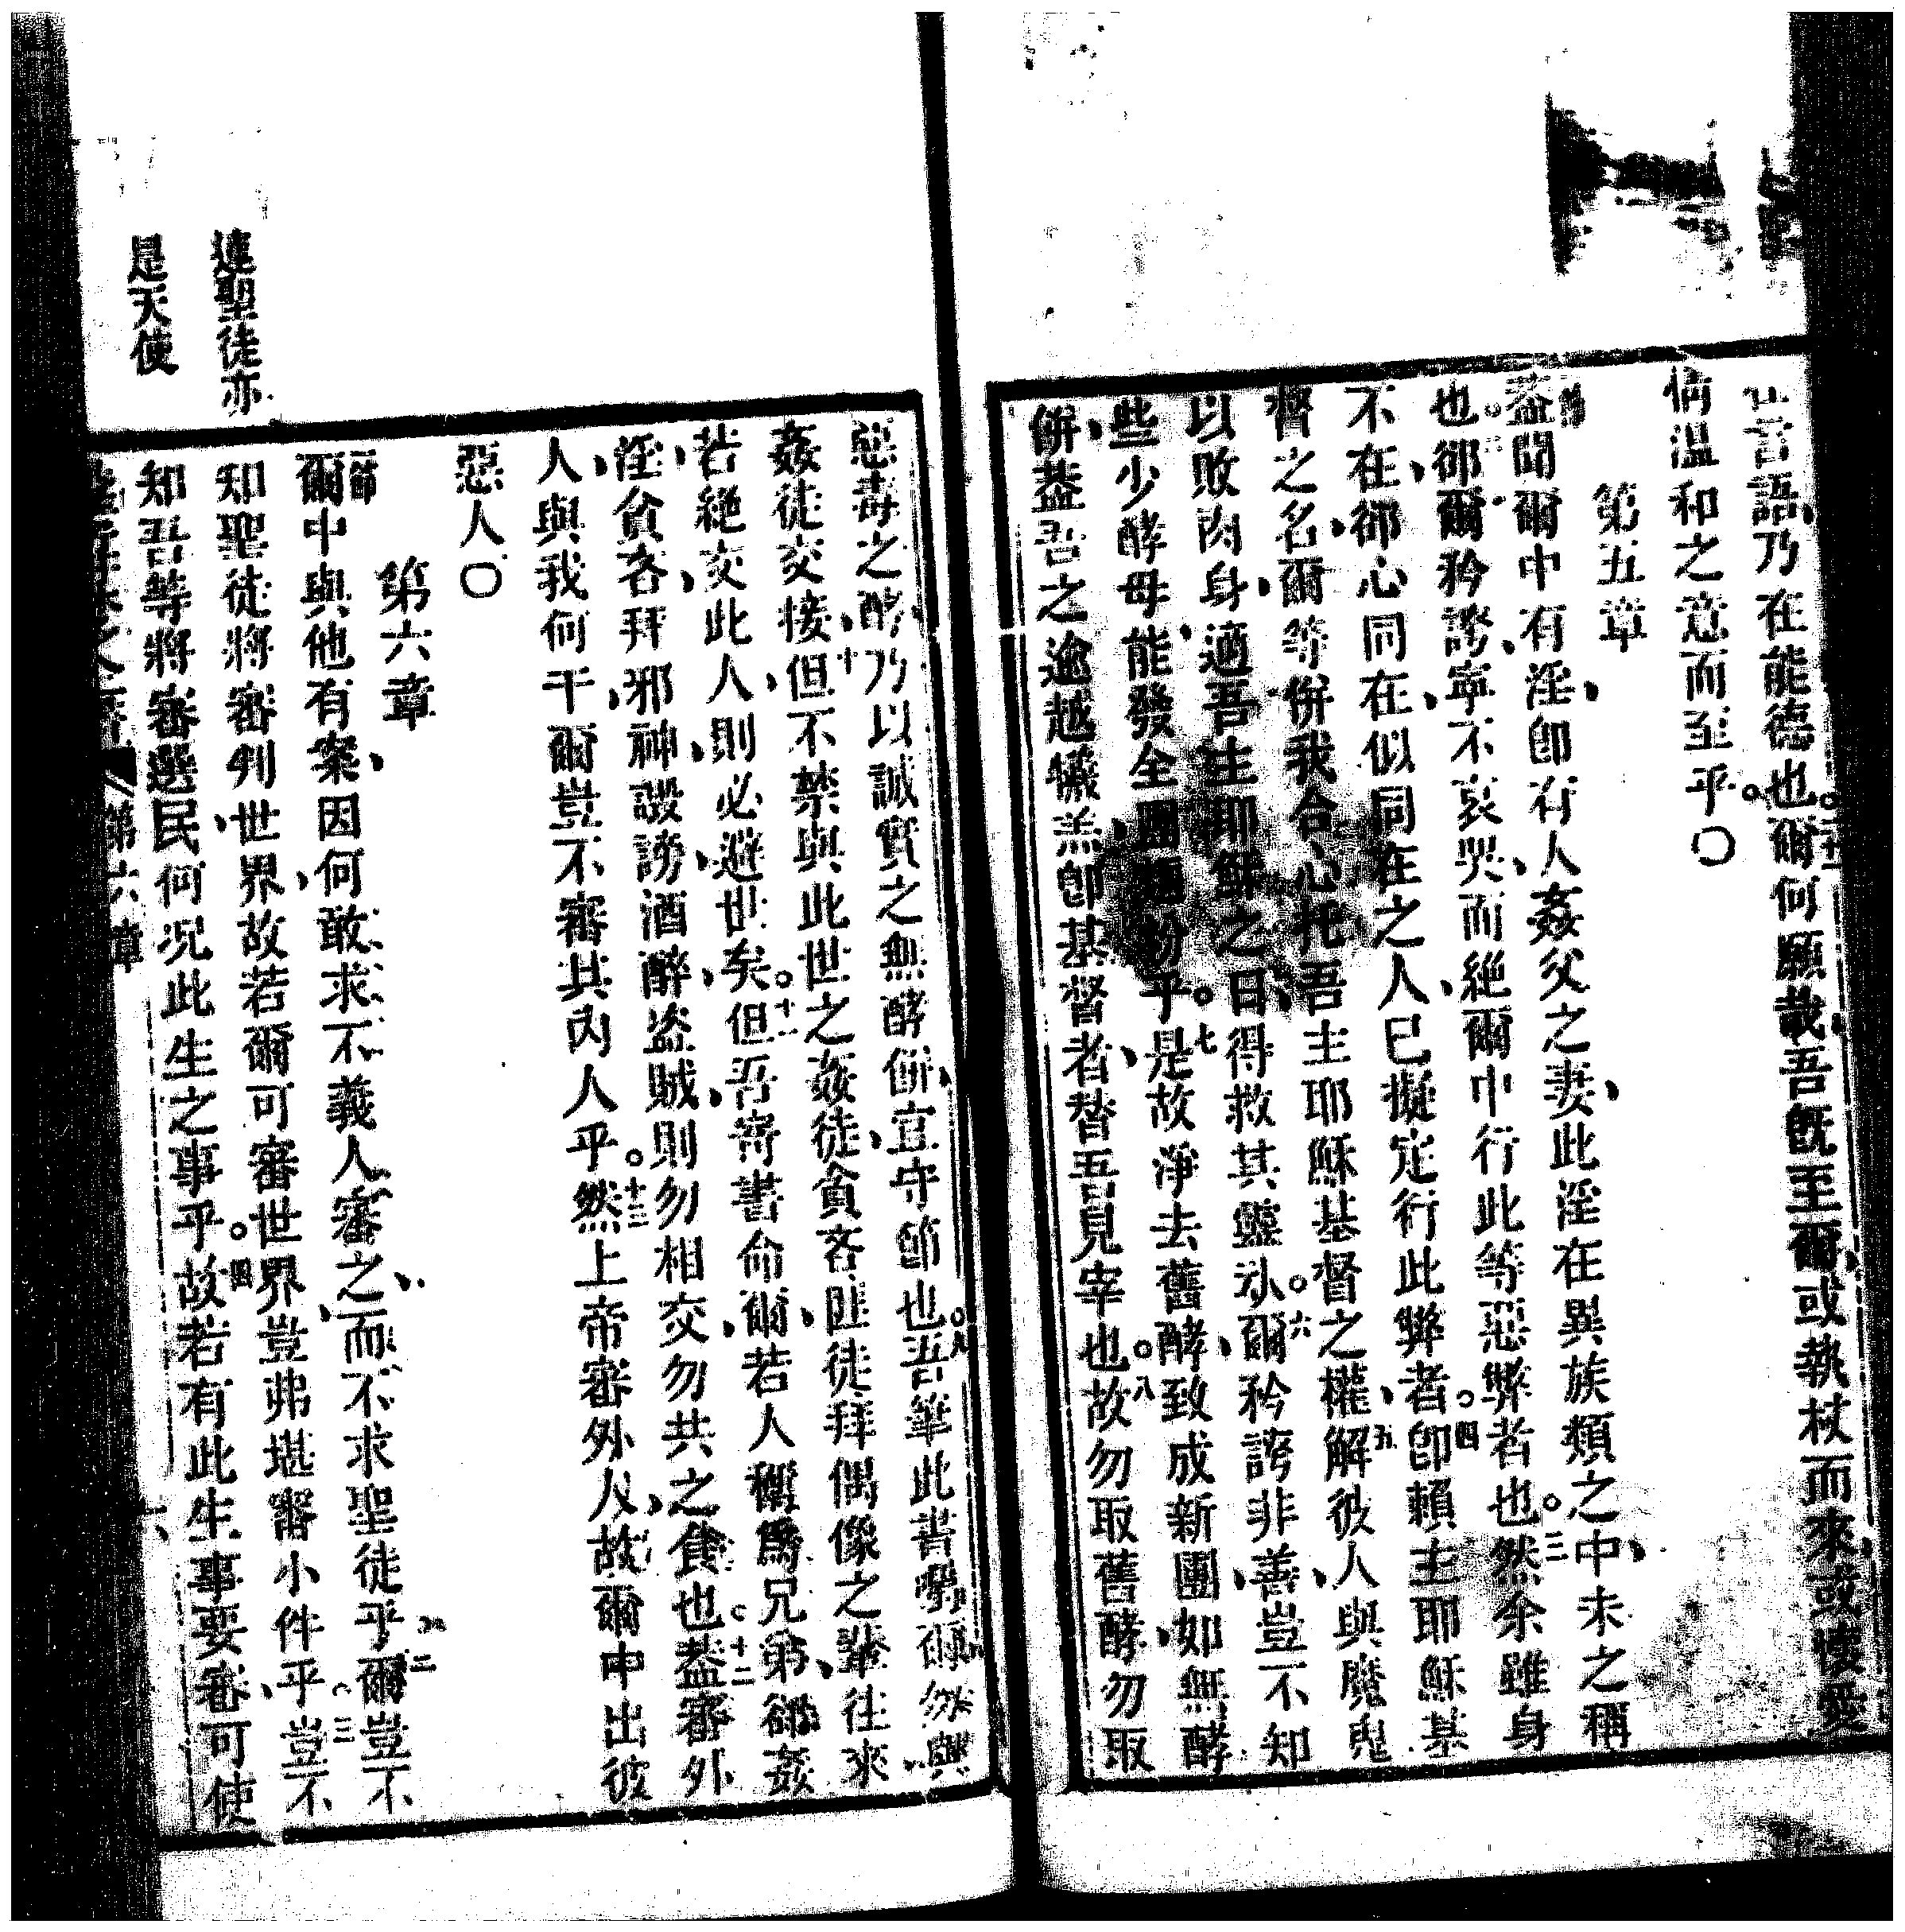 言語乃在能德也爾何願哉吾既至爾或執杖而來或懷愛
情溫和之意而至乎〇
第五章
蓋聞爾中有淫卽有人姦父之妻此淫在異族類之中未之稱
也二郤爾矜誇寧不哀哭而絶爾中行此等惡獘者也三然余雖身
不在郤心同在似同在之人已擬定行此獘者四卽賴主耶穌基
督之名爾等併我合心托吾主耶穌基督之權五解彼人與魔鬼
以敗肉身適吾主耶穌之日得救其靈六爾矜誇非善豈不知
些少酵母能發全團麵粉乎七是故淨去舊酵致成新團如無酵
餅蓋吾之逾越犧羔卽基督者替吾見宰也八故勿取舊酵勿取
惡毒之酵乃以誠實之無酵餅宜守節也九吾筆此書囑爾勿與
姦徒交接十但不禁與此世之姦徒貪吝匪徒拜偶像之輩往來
若絶交此人則必避世矣十一但吾寄書命爾若人稱爲兄弟郤姦
淫貪吝拜邪神譭謗酒醉盜賊則勿相交勿共之食也十二蓋審外
人與我何干爾豈不審其內人乎十三然上帝審外人故爾中出彼
惡人〇
第六章
一節爾中與他有案因何敢求不義人審之而不求聖徒乎二爾豈不
知聖徒將審判世界故若爾可審世界豈弗堪審小件乎三豈不
知吾等將審選民何况此生之事乎四故若有此生事要審可使
連聖徒亦
是天使
第六章